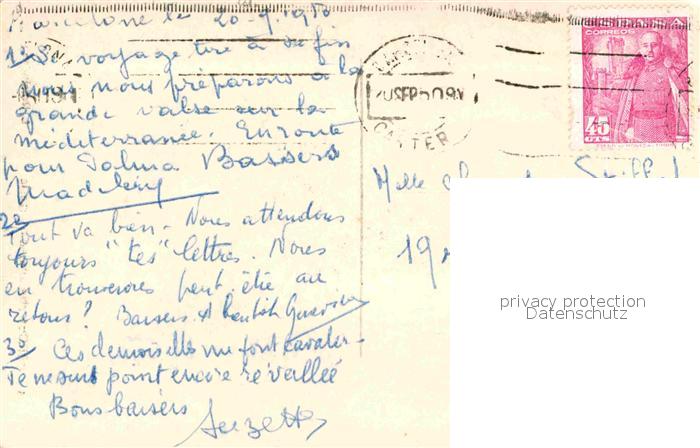 Barcelone le 20-9-1950
1º Le voyage tire à sa fin
nous nous préparons à la
grande valse sur la
méditerranée. En route
pour Palma Baisers
2º
Tout va bien. Nous attendons
toujours "tes" lettres. Nous
en trouverons peut être au
retour? Baisers. A bientôt
3º Ces demoiselles me font cavaler.
Je ne suis point encore
Bons baisers Suzette
CORREOS
45
Melle
19
privacy protection
Datenschutz